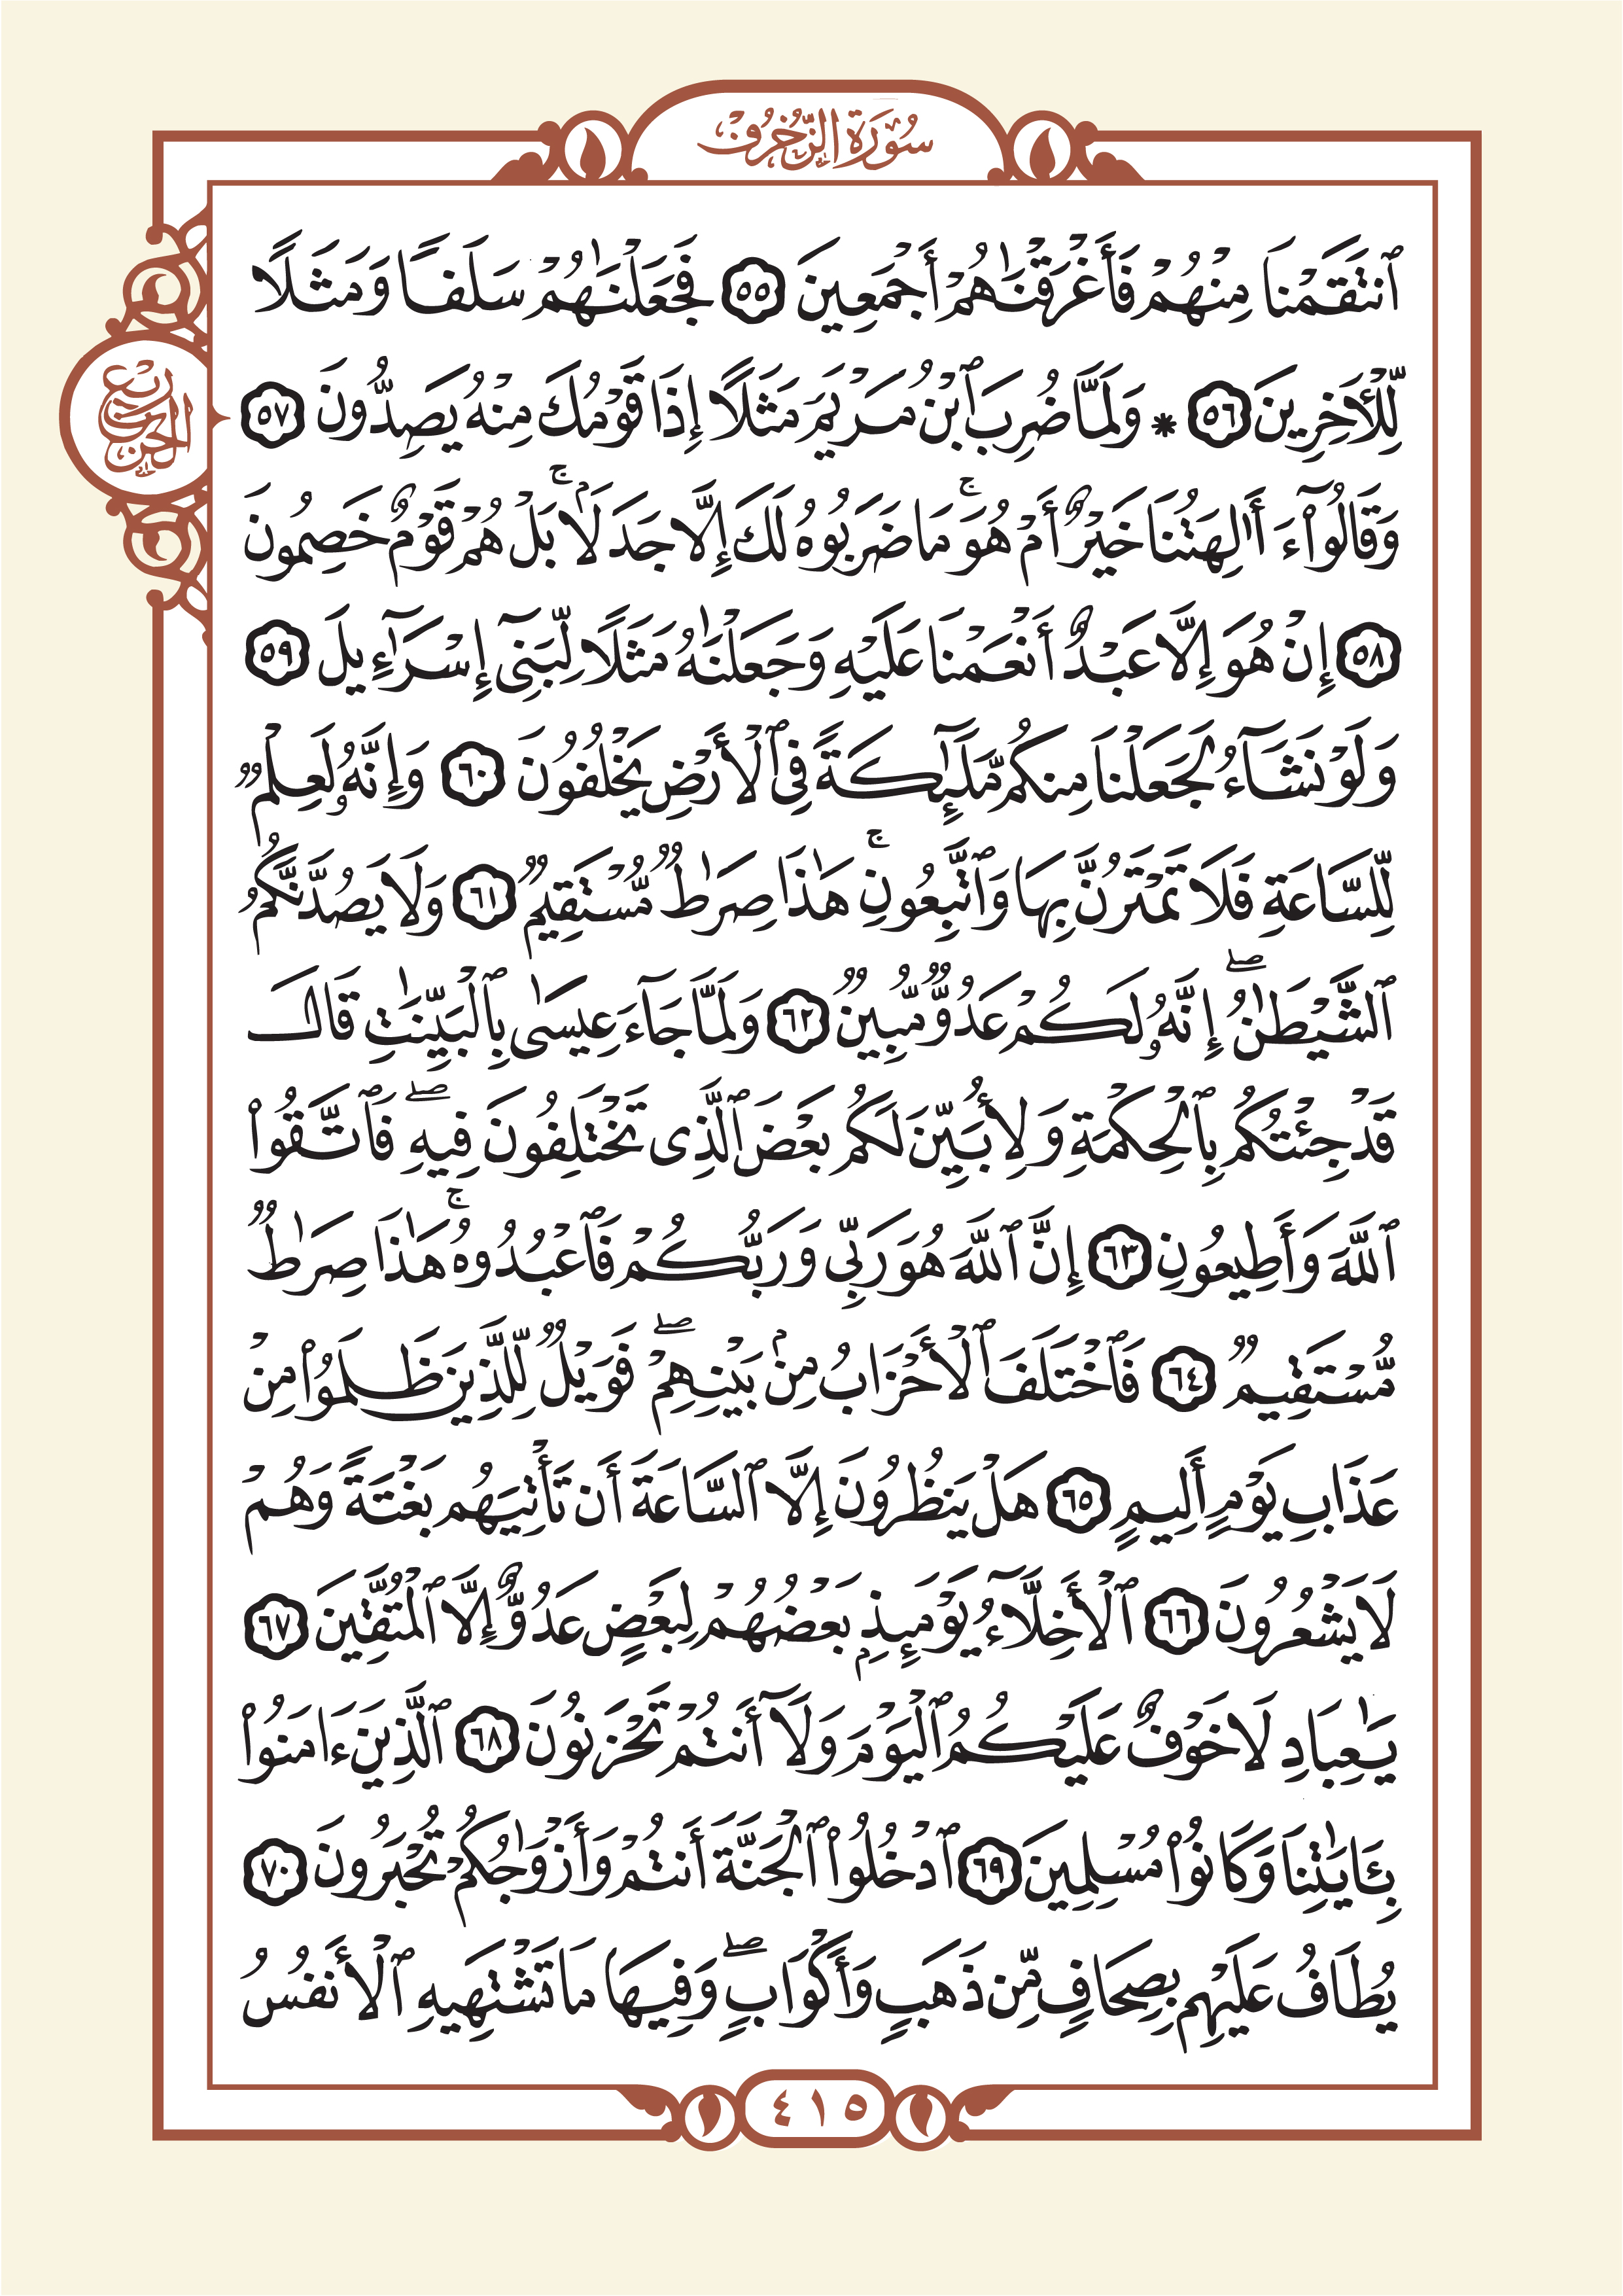 سُورَةُ الزُّخْرُفِ
ٱنتَقَمْنَا مِنْهُمْ فَأَغْرَقْنَٰهُمْ أَجْمَعِينَ ٥٥ فَجَعَلْنَٰهُمْ سَلَفًا وَمَثَلًا
لِّلْأَخِرِينَ ٥٦ * وَلَمَّا ضُرِبَ ٱبْنُ مَرْيَمَ مَثَلًا إِذَا قَوْمُكَ مِنْهُ يَصِدُّونَ ٥٧
ربع الحزب
وَقَالُوٓا۟ ءَأَٰلِهَتُنَا خَيْرٌ أَمْ هُوَ ۚ مَا ضَرَبُوهُ لَكَ إِلَّا جَدَلًۢا ۚ بَلْ هُمْ قَوْمٌ خَصِمُونَ
٥٨ إِنْ هُوَ إِلَّا عَبْدٌ أَنْعَمْنَا عَلَيْهِ وَجَعَلْنَٰهُ مَثَلًا لِّبَنِىٓ إِسْرَٰٓءِيلَ ٥٩
وَلَوْ نَشَآءُ لَجَعَلْنَا مِنكُم مَّلَٰٓئِكَةً فِى ٱلْأَرْضِ يَخْلُفُونَ ٦٠ وَإِنَّهُۥ لَعِلْمٌ
لِّلسَّاعَةِ فَلَا تَمْتَرُنَّ بِهَا وَٱتَّبِعُونِ ۚ هَٰذَا صِرَٰطٌ مُّسْتَقِيمٌ ٦١ وَلَا يَصُدَّنَّكُمُ
ٱلشَّيْطَٰنُ ۖ إِنَّهُۥ لَكُمْ عَدُوٌّ مُّبِينٌ ٦٢ وَلَمَّا جَآءَ عِيسَىٰ بِٱلْبَيِّنَٰتِ قَالَ
قَدْ جِئْتُكُم بِٱلْحِكْمَةِ وَلِأُبَيِّنَ لَكُم بَعْضَ ٱلَّذِى تَخْتَلِفُونَ فِيهِ ۖ فَٱتَّقُوا۟
ٱللَّهَ وَأَطِيعُونِ ٦٣ إِنَّ ٱللَّهَ هُوَ رَبِّى وَرَبُّكُمْ فَٱعْبُدُوهُ ۚ هَٰذَا صِرَٰطٌ
مُّسْتَقِيمٌ ٦٤ فَٱخْتَلَفَ ٱلْأَحْزَابُ مِنۢ بَيْنِهِمْ ۖ فَوَيْلٌ لِّلَّذِينَ ظَلَمُوا۟ مِنْ
عَذَابِ يَوْمٍ أَلِيمٍ ٦٥ هَلْ يَنظُرُونَ إِلَّا ٱلسَّاعَةَ أَن تَأْتِيَهُم بَغْتَةً وَهُمْ
لَا يَشْعُرُونَ ٦٦ ٱلْأَخِلَّآءُ يَوْمَئِذٍۭ بَعْضُهُمْ لِبَعْضٍ عَدُوٌّ إِلَّا ٱلْمُتَّقِينَ ٦٧
يَٰعِبَادِ لَا خَوْفٌ عَلَيْكُمُ ٱلْيَوْمَ وَلَآ أَنتُمْ تَحْزَنُونَ ٦٨ ٱلَّذِينَ ءَامَنُوا۟
بِـَٔايَٰتِنَا وَكَانُوا۟ مُسْلِمِينَ ٦٩ ٱدْخُلُوا۟ ٱلْجَنَّةَ أَنتُمْ وَأَزْوَٰجُكُمْ تُحْبَرُونَ ٧٠
يُطَافُ عَلَيْهِم بِصِحَافٍ مِّن ذَهَبٍ وَأَكْوَابٍ ۖ وَفِيهَا مَا تَشْتَهِيهِ ٱلْأَنفُسُ
٤١٥